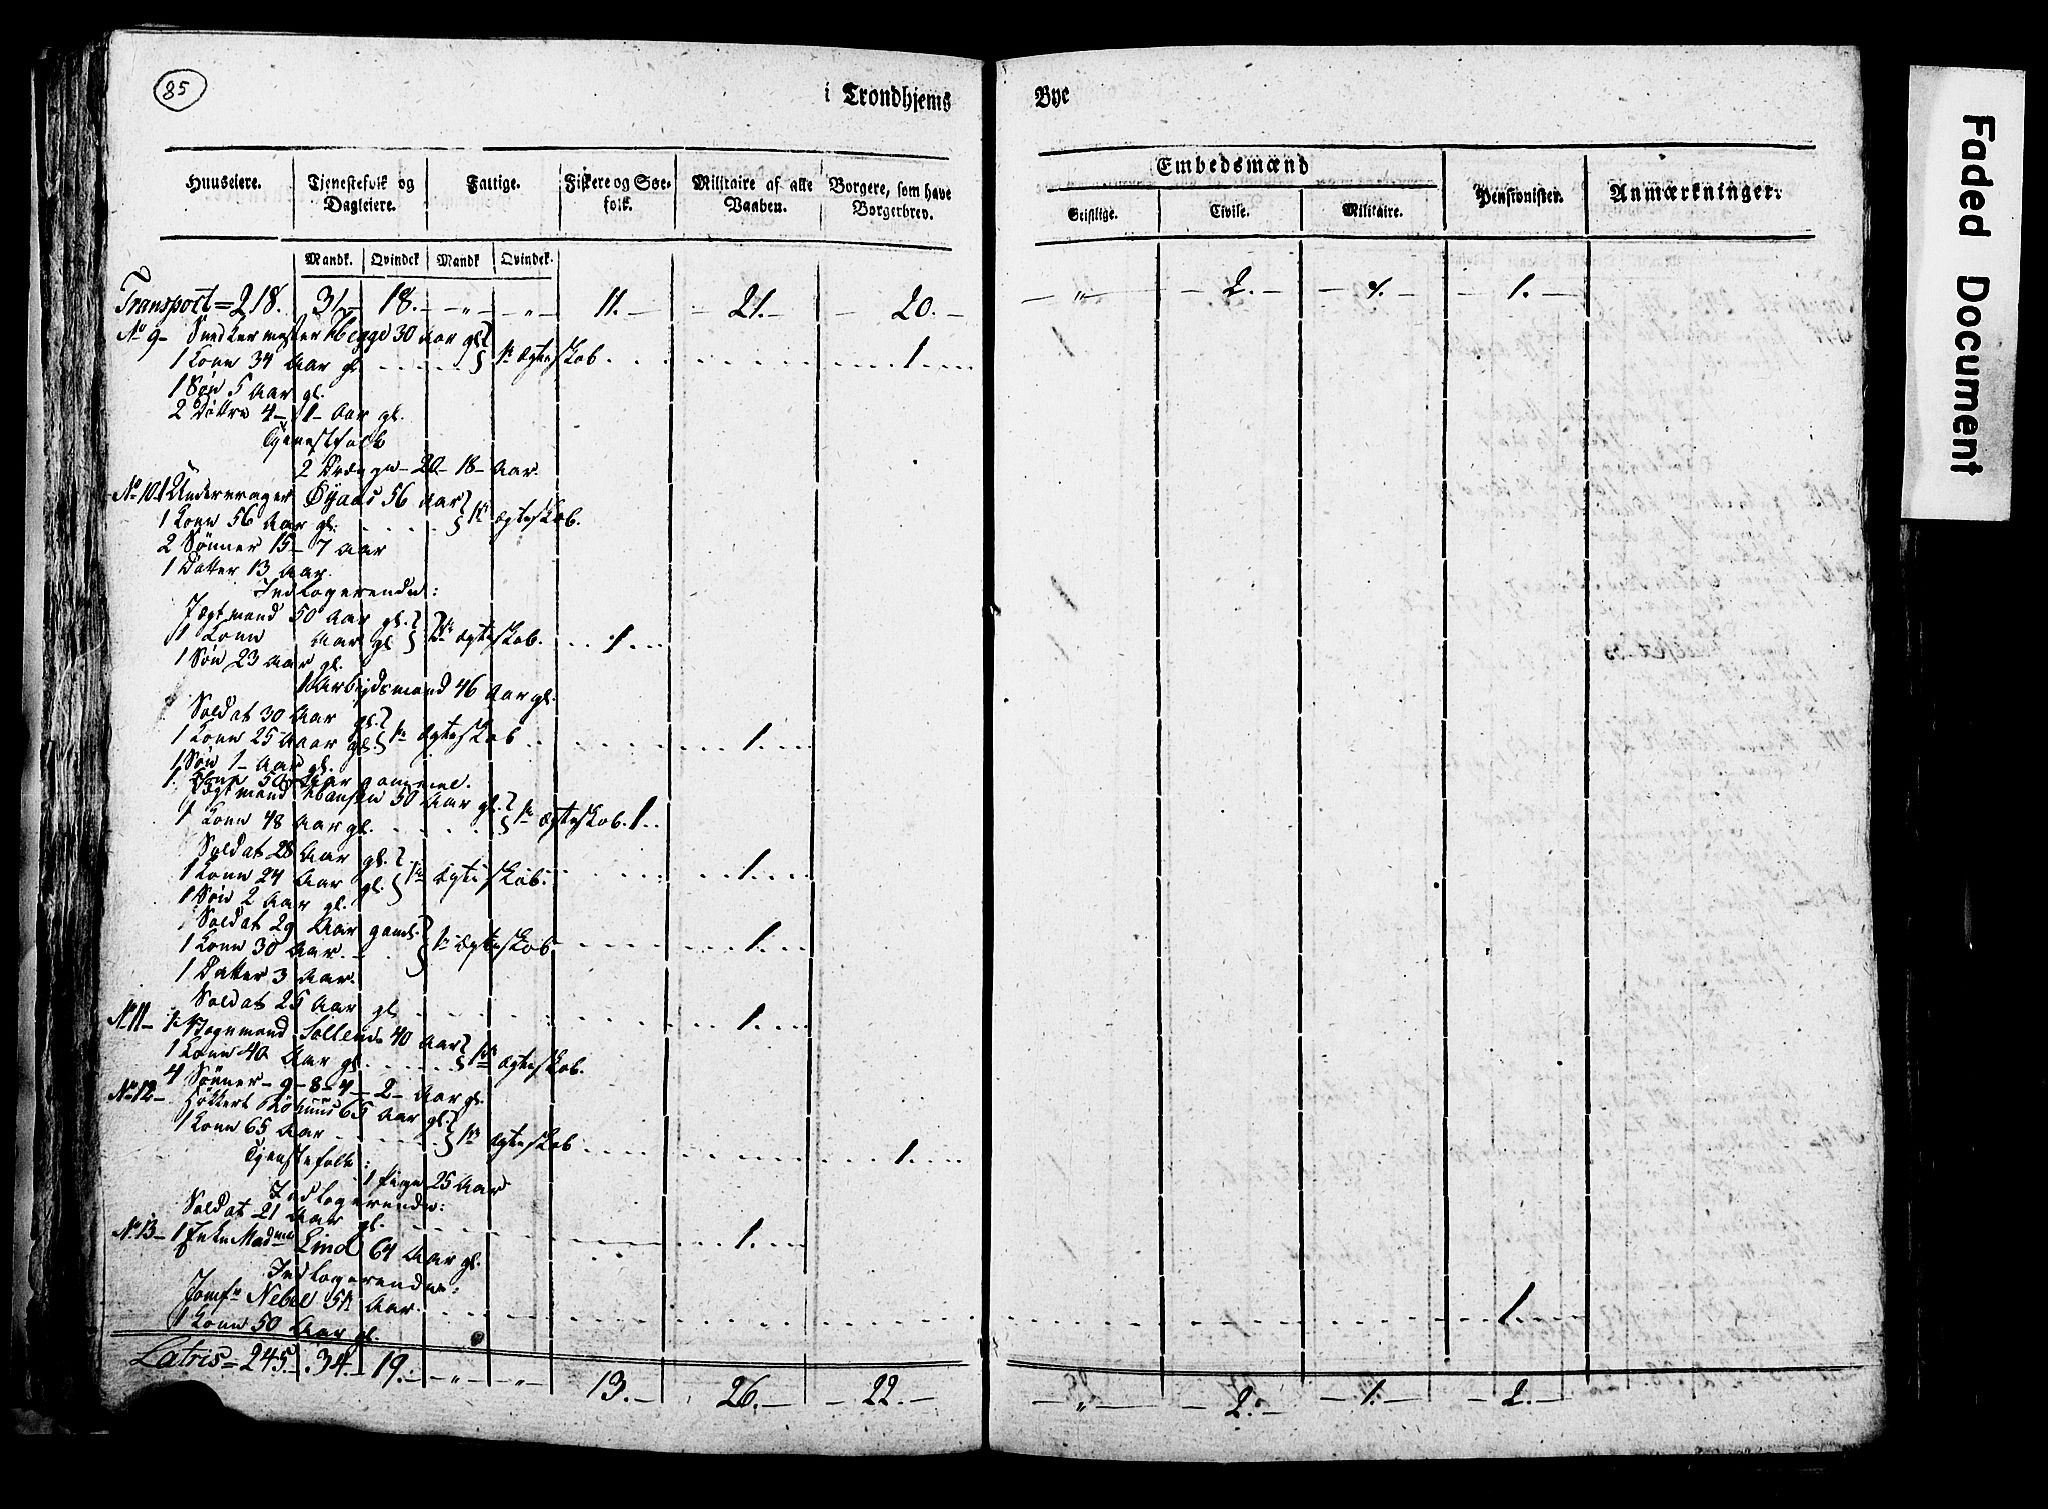 85
i Trondhjems Bye
Huuseiere. Tjenestefolk og Dagleiere. Fattige. Fiskere og Søefolk. Militaire af alle Vaaben. Borgere, som have Borgerbrev. Embedsmænd Pensionister. Anmærkninger.
Geistlige. Civile. Militaire.
Mandk. Qvindek Mandk Qvindek.
Transport = 218. 31 18. „ „ 11. 21. 20. „ 2. 1. 1.
No 9 Snedkermester Hegge 30 Aar gl.
1 Kone 34 Aar gl. 1te Ægteskab 1.
1 Søn 5 Aar gl.
2 Døttre 4 1 Aar gl.
Tjenestfolk
2 Drenge 20 18 Aar.
No 10 1 Undervrager Øyaas 56 Aar
1 Kone 56 Aar gl. 1te Ægteskab.
2 Sønner 15 7 Aar
1 Datter 13 Aar.
Indlogerende:
Jægtmand 50 Aar gl.
1 Kone Aar gl. Ægteskab. 1
1 Søn 23 Aar gl.
1 Arbejdsmand 46 Aar gl.
Soldat 30 Aar gl.
1 Kone 25 Aar gl. 1te Ægteskab 1.
1 Søn 1 Aar gl.
1 Kone 50 Aar gammel.
Jægtmand Hansen 50 Aar gl.
1 Kone 48 Aar gl. 1te Ægteskab. 1
Soldat 28 Aar gl.
1 Kone 24 Aar gl. 1te Ægteskab. 1.
1 Søn 2 Aar gl.
Soldat 29 Aar gaml.
1 Kone 30 Aar. 1te Ægteskab 1.
1 Datter 3 Aar.
Soldat 25 Aar gl. 1.
No 11 1 Vognmand 40 Aar
1 Kone 40 Aar gl. 1te Ægteskab.
4 Sønner 9 8 4 2 Aar gl.
No 12 Høkkert 65 Aar gl.
1 Kone 65 Aar 1te Ægteskab 1.
Tjenstefolk:
1 Pige 25 Aar
Indlogerende:
Soldat 21 Aar gl. 1.
No 13 1 Enke Madme Lind 64 Aar gl.
Indlogerende:
Jomfr Nebel Aar. 1.
1 Kone 50 Aar gl.
Latris = 245. 34. 19. „ „ 13. 26. 22. „ 2. 1. 2.
Faded Document